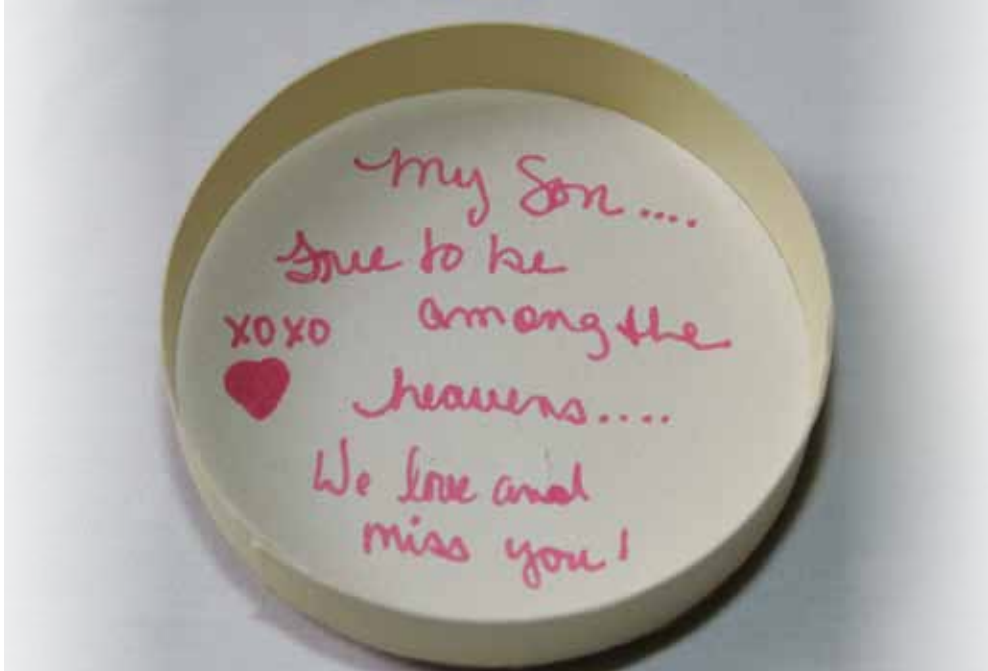 My Son....
Free to be
XOXO among the
heavens....
We love and
miss you!